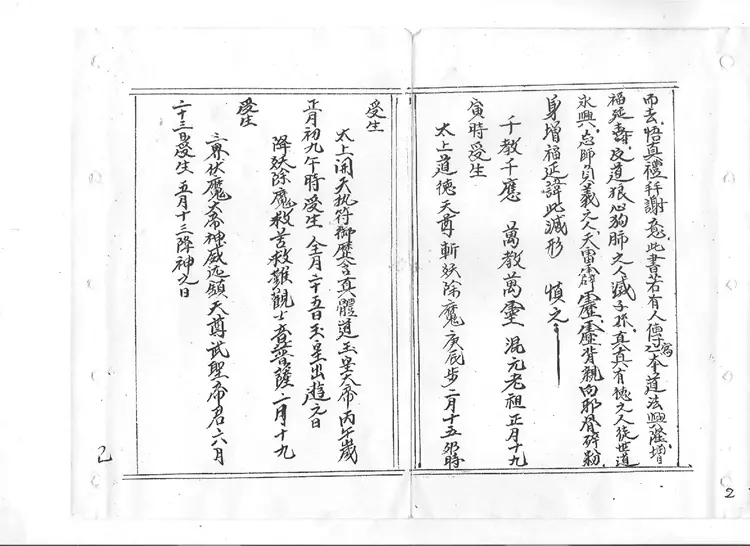 而去悟真禮拜謝意此書若有人傳寫奉道法興隆增
福延壽反道狼心狗肺之人滅子孫真真有德之人徒世道
永興忘師負義之人天雷霹靂靈背親向邪骨碎粉
身增福延諱此滅形 慎之
千教千應 萬教萬靈 混元老祖正月十九
寅時受生
太上道德天尊斬妖除魔庚辰步二月十五卯時
受生
太上開天执符御歷含真體道玉皇大帝丙午歲
正月初九午時受生 仝月二十五日玉皇出遊之日
降妖除魔救苦救難觀士音菩薩二月十九
受生
三界伏魔大帝神威远鎮天尊武聖帝君六月
二十三日受生 五月十三降神之日
2
2